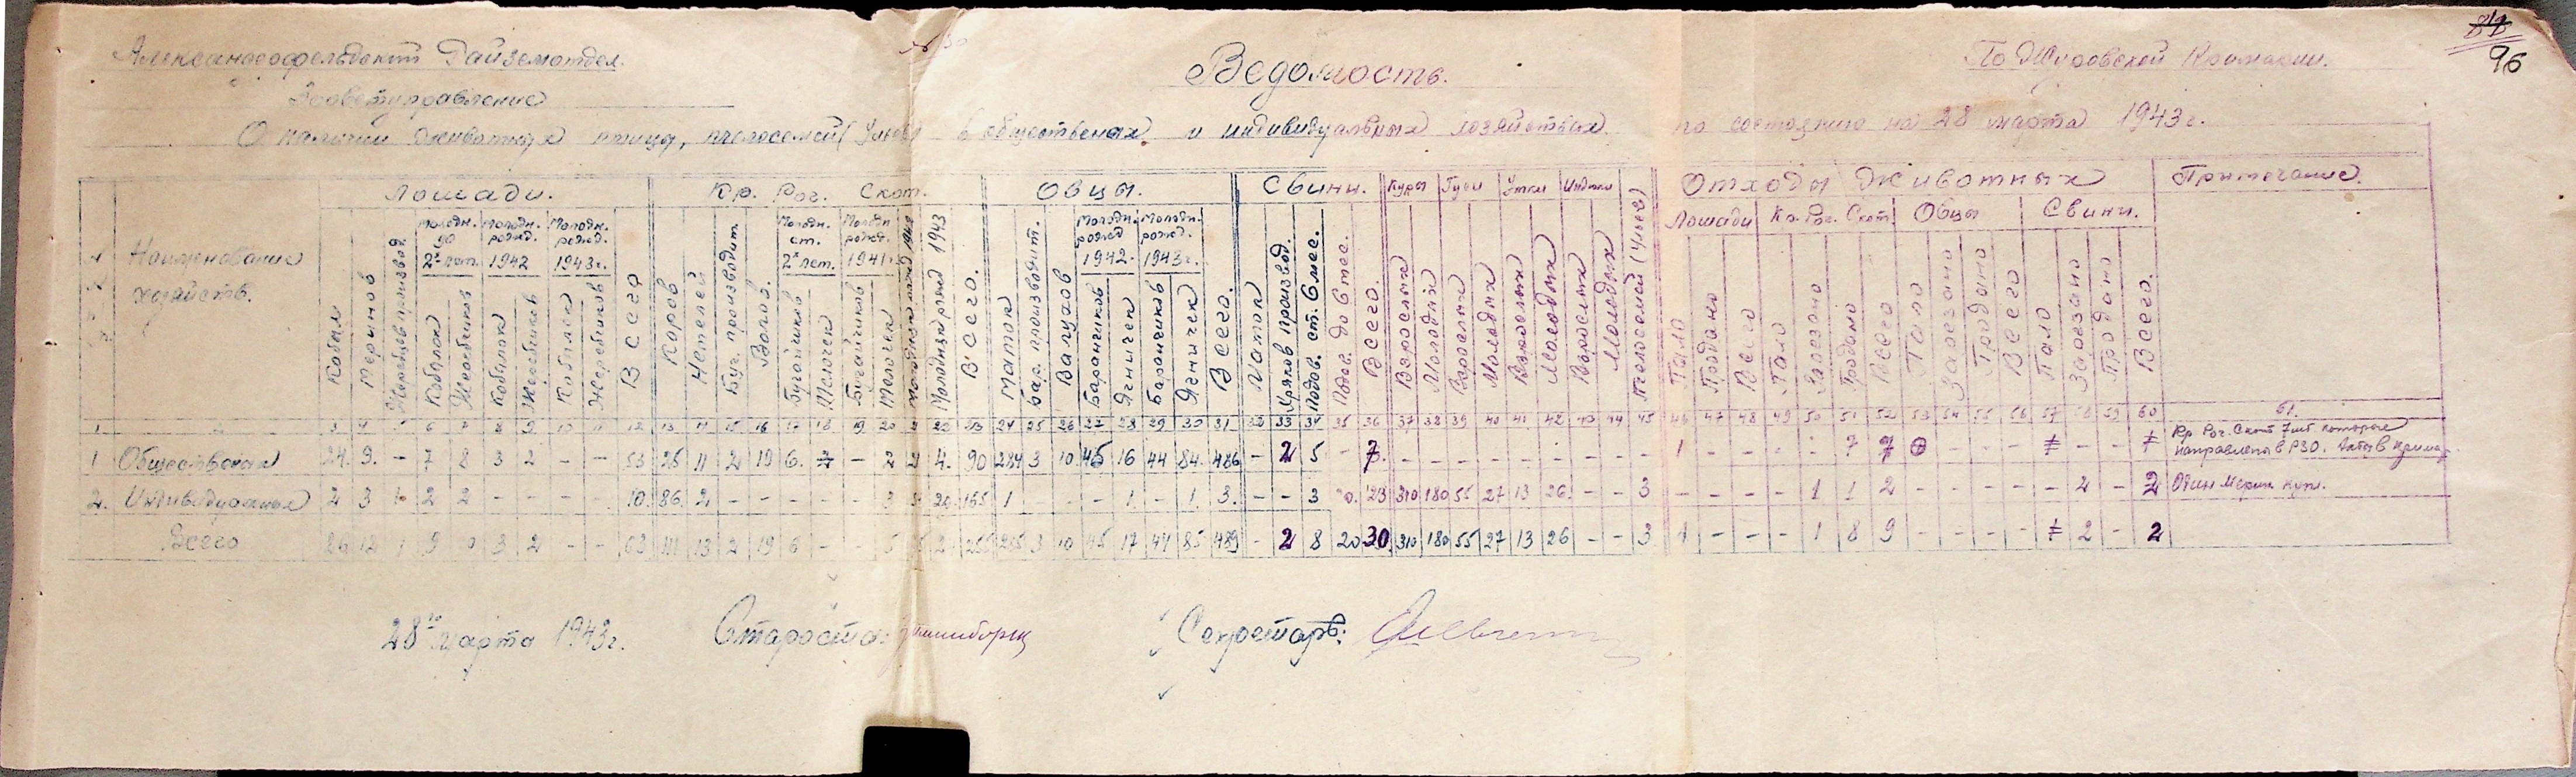 81
96
Александрофельдский Райземотдел.
Зооветуправление
Ведомость.
По Жуковской
О наличии животных птицы, пчелосемей (Ульев) в общественных и индивидуальных хозяйствах по состоянию на 28 марта 1943 г.
Наименование хозяйств.
Лошади.
Кр. Рог. Скот.
Овцы.
Свини.
Куры Гуси Утки Индюки
Отходы животных
Примечание.
Лошади Кр. Рог. Скот Овцы Свини.
Молодн. до 2х лет. Молодн. рожд. 1942 Молодн. рожд. 1943 г.
Молодн. ст. 2х лет. Молодн рожд. 1941
Молодн. рожд 1942. Молодн. рожд. 1943 г.
Кобыл Меринов Жеребцов производ. Кобылок Жеребчиков Кобылок Жеребчиков Кобылок Жеребчиков Всего
Коров Нетелей Буг. производит. Волов. Бугайчиков Телочек Бугайчиков Телочек Молодняк рожд 1942 Молодняк рожд 1943 Всего.
Маток Бар. производит. Валухов Баранчиков Ягничек Баранчиков Ягничек Всего.
Маток Хряков производ. Подсв. ст. 6 мес. Подсв. до 6 мес. Всего.
Взрослых Молодых Взрослых Молодых Взрослых Молодых Взрослых Молодых Пчелосемей (Ульев)
Пало Продано Всего Пало Зарезано Продано Всего Пало Зарезано Продано Всего Пало Зарезано Продано Всего.
1 2 3 4 5 6 7 8 9 10 11 12 13 14 15 16 17 18 19 20 21 22 23 24 25 26 27 28 29 30 31 32 33 34 35 36 37 38 39 40 41 42 43 44 45 46 47 48 49 50 51 52 53 54 55 56 57 58 59 60 61.
1 Общественная 24. 9. - 7 8 3 2 - - 53 25 11 2 19 6. - 2 4. 90 284 3 10 45 16 44 84. 486 - 2 5 - 7. - - - - - - - - - 1 - - - - 7 7 - - - - - -
Кр Рог. Скот 7 шт. которые направлены в РЗО.
2. Индивидуальных 2 3 1 2 2 - - - - 10. 86. 2 - - - - - 3 20. 165 1 - - - 1 - 1 3. - - 3 20. 23 310 180 55 27 13 26. - - 3 - - - - 1 1 2 - - - - - 2 - 2
Один мерин купл.
Всего 26 12 1 9 10 3 2 - - 63 111 13 2 19 6 - - 5 255 285 3 10 45 17 44 85 489 - 2 8 20 30. 310 180 55 27 13 26 - - 3 1 - - - 1 8 9 - - - - 2 - 2
28го марта 1943 г. Староста: Секретарь: